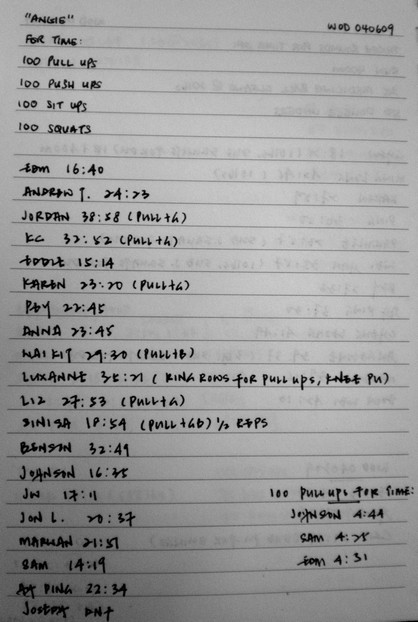 "ANGIE"
WOD 040609
FOR TIME:
100 PULL UPS
100 PUSH UPS
100 SIT UPS
100 SQUATS
EDM 16:40
ANDREW T. 24:23
JORDAN 38:58 (PULL+G)
KC 32:52 (PULL+G)
EDDIE 15:14
KAREN 23:20 (PULL+G)
22:45
ANNA 23:45
WAI KIT 29:30 (PULL+B)
LUXANNE 35:21 (RING ROWS FOR PULL UPS, KNEE PU)
LIZ 27:53 (PULL+G)
SINISA 18:54 (PULL+GB) 1/2 REPS
BENSON 32:49
JOHNSON 16:35
JW 17:11
JON L. 20:37
MARLAN 21:51
SAM 14:19
PING 22:34
DNF
100 PULL UPS FOR TIME:
JOHNSON 4:44
SAM 4:25
EDM 4:31